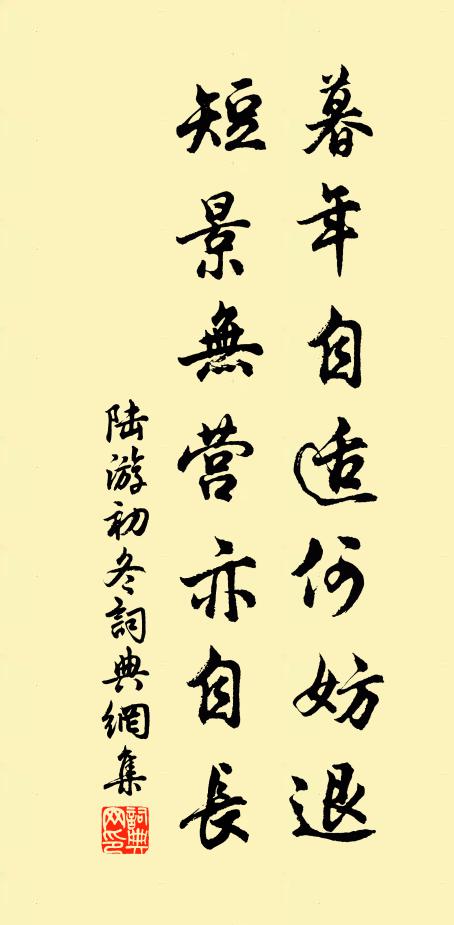 暮年自适何妨退
短景無营亦自長
陆游初冬詞典網集
詞典网印